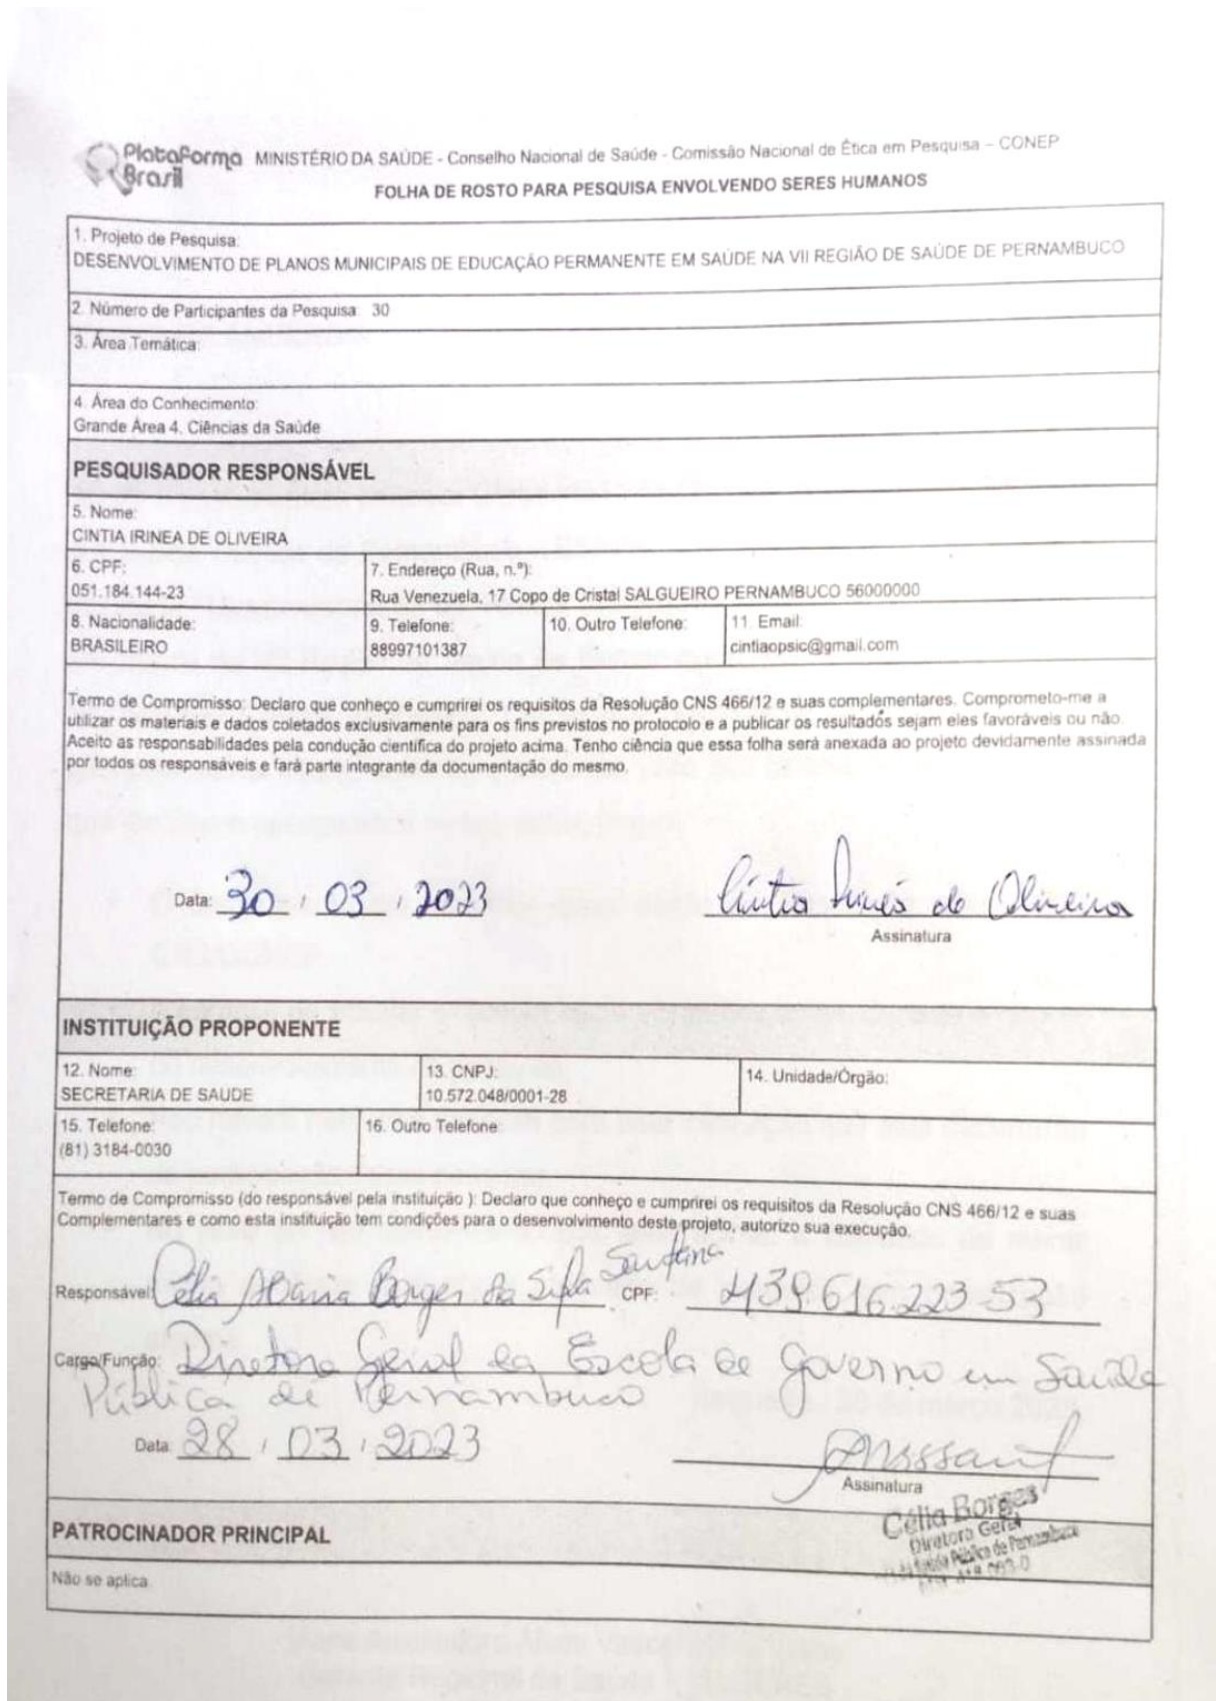 Plataforma Brasil
MINISTÉRIO DA SAÚDE - Conselho Nacional de Saúde - Comissão Nacional de Ética em Pesquisa – CONEP
FOLHA DE ROSTO PARA PESQUISA ENVOLVENDO SERES HUMANOS
1. Projeto de Pesquisa:
DESENVOLVIMENTO DE PLANOS MUNICIPAIS DE EDUCAÇÃO PERMANENTE EM SAÚDE NA VII REGIÃO DE SAÚDE DE PERNAMBUCO
2. Número de Participantes da Pesquisa: 30
3. Área Temática:
4. Área do Conhecimento:
Grande Área 4. Ciências da Saúde
PESQUISADOR RESPONSÁVEL
5. Nome:
CINTIA IRINEA DE OLIVEIRA
6. CPF:
051.184.144-23
7. Endereço (Rua, n.º):
Rua Venezuela, 17 Copo de Cristal SALGUEIRO PERNAMBUCO 56000000
8. Nacionalidade:
BRASILEIRO
9. Telefone:
88997101387
10. Outro Telefone:
11. Email:
cintiaopsic@gmail.com
Termo de Compromisso: Declaro que conheço e cumprirei os requisitos da Resolução CNS 466/12 e suas complementares. Comprometo-me a
utilizar os materiais e dados coletados exclusivamente para os fins previstos no protocolo e a publicar os resultados sejam eles favoráveis ou não.
Aceito as responsabilidades pela condução científica do projeto acima. Tenho ciência que essa folha será anexada ao projeto devidamente assinada
por todos os responsáveis e fará parte integrante da documentação do mesmo.
Data: 30 / 03 / 2023
Cíntia de Oliveira
Assinatura
INSTITUIÇÃO PROPONENTE
12. Nome:
SECRETARIA DE SAUDE
13. CNPJ:
10.572.048/0001-28
14. Unidade/Órgão:
15. Telefone:
(81) 3184-0030
16. Outro Telefone:
Termo de Compromisso (do responsável pela instituição ): Declaro que conheço e cumprirei os requisitos da Resolução CNS 466/12 e suas
Complementares e como esta instituição tem condições para o desenvolvimento deste projeto, autorizo sua execução.
Responsável: Célia Maria Borges da Silva Santana CPF: 439.616.223-53
Cargo/Função: Diretora Geral da Escola de Governo em Saúde
Pública de Pernambuco
Data: 28 / 03 / 2023
Assinatura
Célia Borges
Diretora Geral
Saúde Pública de Pernambuco
PATROCINADOR PRINCIPAL
Não se aplica.